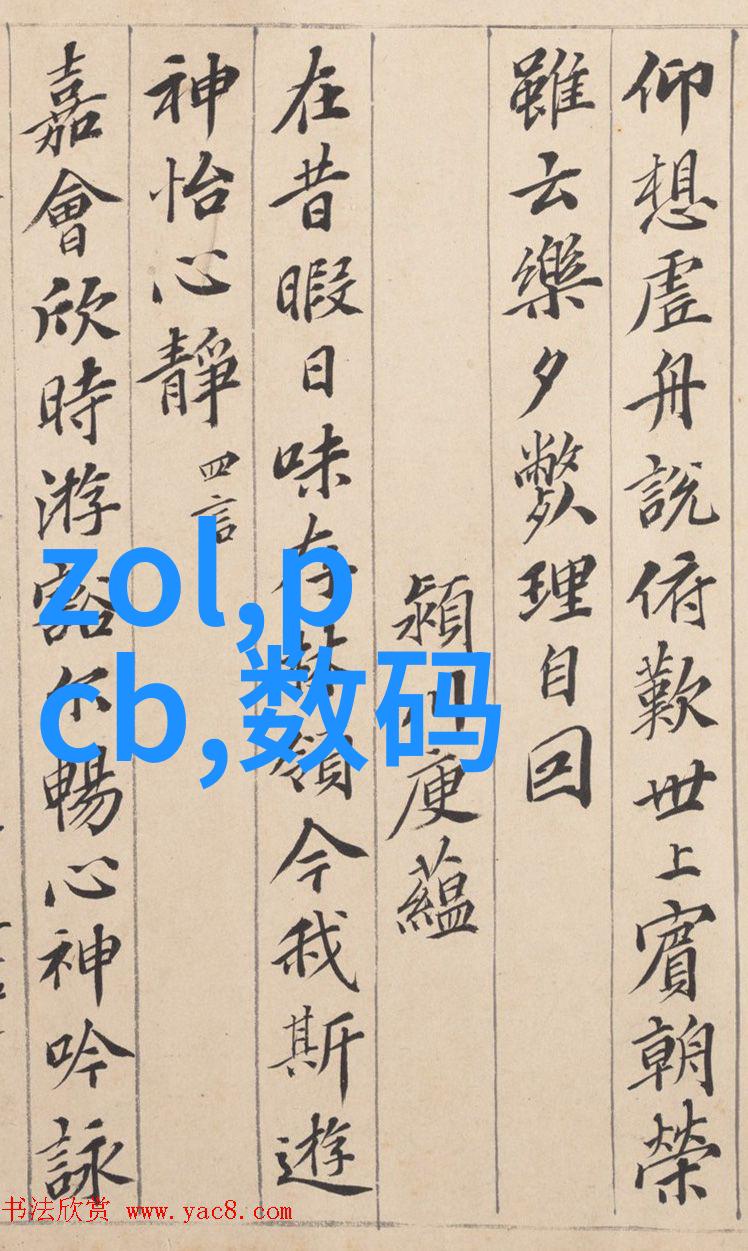 仰想虛舟說俯歎世上賓朝榮
雖云樂夕弊理自回
潁川庾蘊
在昔暇日味存林嶺今我斯遊
神怡心靜 四言
嘉會欣時游豁尔暢心神吟詠
zol,p
cb,数码
书法欣赏 www.yac8.com